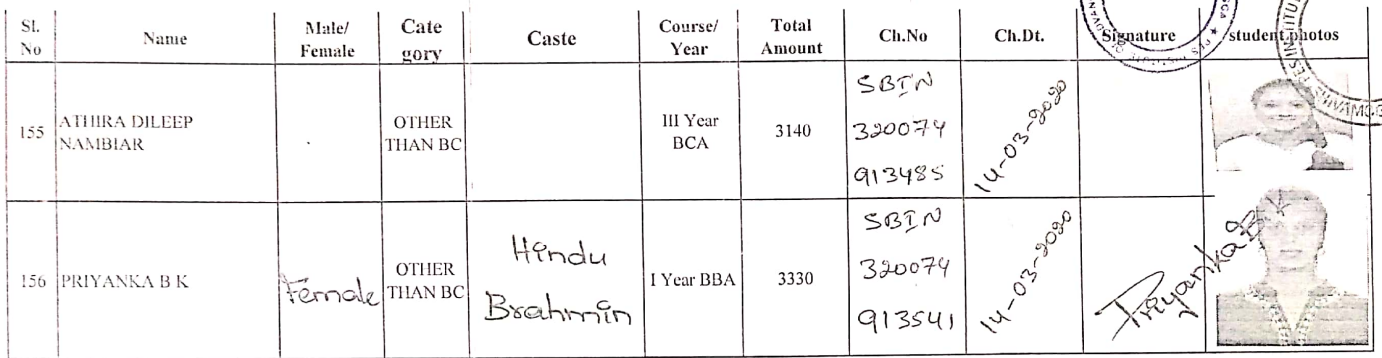 Sl. No Name Male/ Female Cate gory Caste Course/ Year Total Amount Ch.No Ch.Dt. Signature student photos
155 ATHIRA DILEEP NAMBIAR OTHER THAN BC III Year BCA 3140 SBIN 320074 913485 14-03-2020
156 PRIYANKA B K Female OTHER THAN BC Hindu Brahmin I Year BBA 3330 SBIN 320074 913541 14-03-2020 Priyanka B K